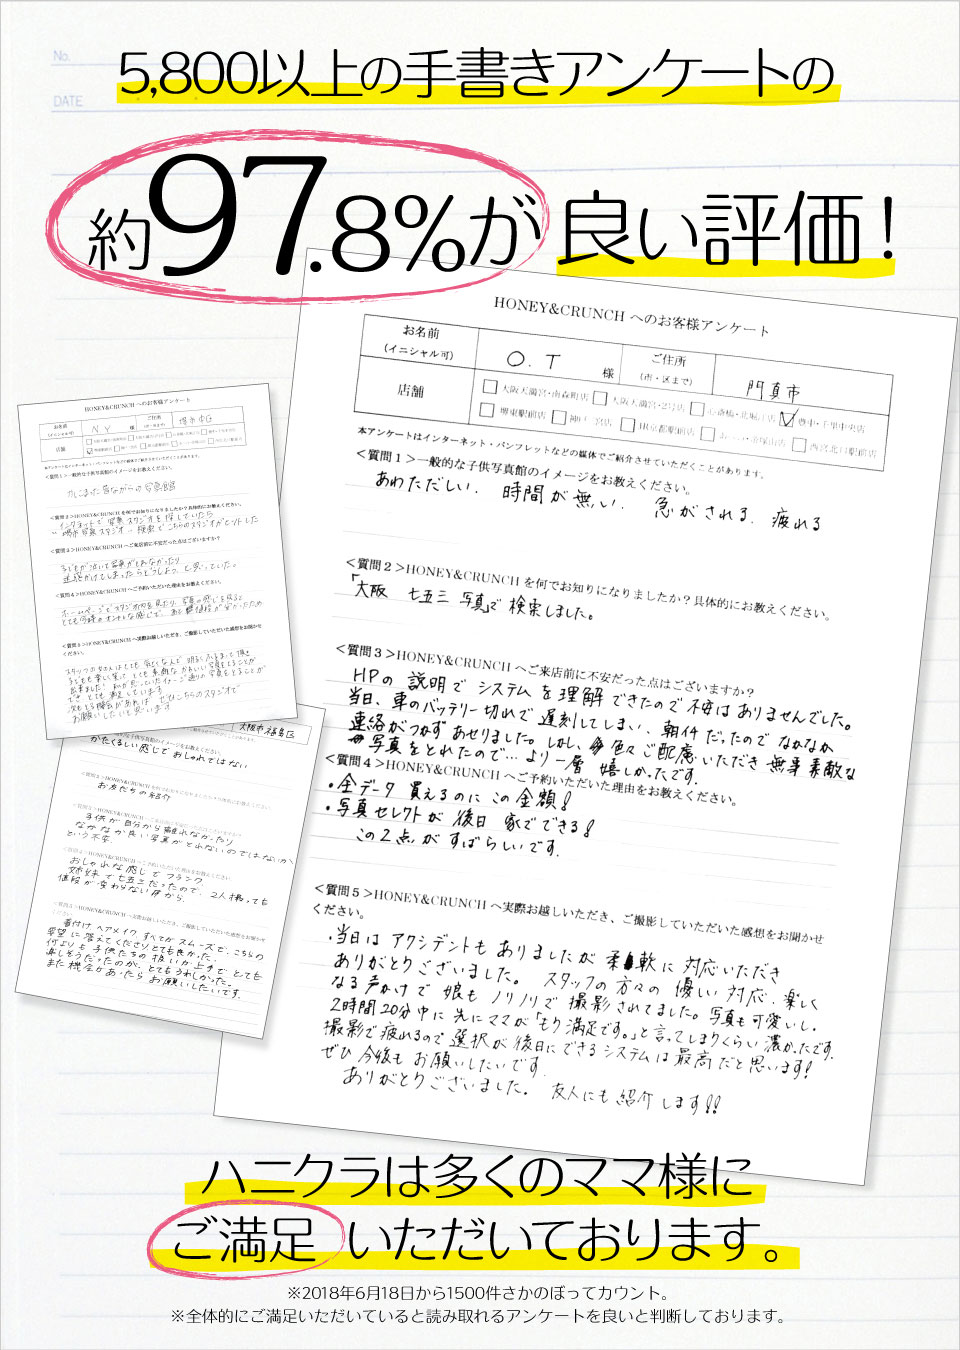 No.
DATE
5,800以上の手書きアンケートの
約97.8%が良い評価!
HONEY&CRUNCH へのお客様アンケート
お名前
(イニシャル可)
O.T 様
ご住所
(市・区まで)
門真市
店舗
大阪天満宮・南森町店 大阪天満宮・2号店 心斎橋・北堀江店 豊中・千里中央店
堺東駅前店 神戸三宮店 JR京都駅前店 西宮北口駅前店
本アンケートはインターネット・パンフレットなどの媒体でご紹介させていただくことがあります。
<質問1>一般的な子供写真館のイメージをお教えください。
あわただしい. 時間が無い. 急がされる. 疲れる
<質問2>HONEY&CRUNCH を何でお知りになりましたか?具体的にお教えください。
「大阪 七五三 写真」で検索しました。
<質問3>HONEY&CRUNCH へご来店前に不安だった点はございますか?
HPの説明でシステムを理解できたので不安はありませんでした。
当日、車のバッテリー切れで遅刻してしまい、朝イチだったのでなかなか
連絡がつかずあせりました。しかし、色々ご配慮いただき無事素敵な
写真をとれたので…より一層嬉しかったです。
<質問4>HONEY&CRUNCH へご予約いただいた理由をお教えください。
・全データ買えるのにこの金額!
・写真セレクトが後日家でできる!
この2点がすばらしいです.
<質問5>HONEY&CRUNCH へ実際お越しいただき、ご撮影していただいた感想をお聞かせ
ください。
・当日はアクシデントもありましたが柔軟に対応いただき
ありがとうございました。スタッフの方々の優しい対応.楽しく
なる声かけで娘もノリノリで撮影されてました。写真も可愛いし.
2時間20分中に先にママが「もう満足です。」と言ってしまうくらい濃かったです.
撮影で疲れるので選択が後日にできるシステムは最高だと思います!
ぜひ今後もお願いしたいです.
ありがとうございました. 友人にも紹介します!!
HONEY&CRUNCH へのお客様アンケート
お名前
(イニシャル可)
N.Y 様
ご住所
(市・区まで)
堺市中区
店舗
<質問1>一般的な子供写真館のイメージをお教えください。
かしこまった昔ながらの写真館
<質問2>HONEY&CRUNCH を何でお知りになりましたか?具体的にお教えください。
インターネットで写真スタジオを探していたら
"堺市写真スタジオ"検索でこちらのスタジオがヒットした
<質問3>HONEY&CRUNCH へご来店前に不安だった点はございますか?
子どもが泣いて写真がとれなかったり
迷惑かけてしまったらどうしよう、と思っていた。
<質問4>HONEY&CRUNCH へご予約いただいた理由をお教えください。
<質問5>HONEY&CRUNCH へ実際お越しいただき、ご撮影していただいた感想をお聞かせ
ください。
お願いしたいと思います
大阪市福島区
かたくるしい感じでおしゃれではない
お友だちの紹介
子供が自分から離れなかったり
なかなか良い写真がとれないのではないか
という不安.
おしゃれな感じでフランク
姉妹で七五三だったので、2人撮っても
値段が変わらない所から.
着付けヘアメイクすべてがスムーズで、こちらの
要望に答えてくださりとても良かった.
何よりも子供たちの扱いが上手でとても
楽しそうだったのが、とてもうれしかった。
また機会があったらお願いしたいです.
ハニクラは多くのママ様に
ご満足いただいております。
※2018年6月18日から1500件さかのぼってカウント。
※全体的にご満足いただいていると読み取れるアンケートを良いと判断しております。